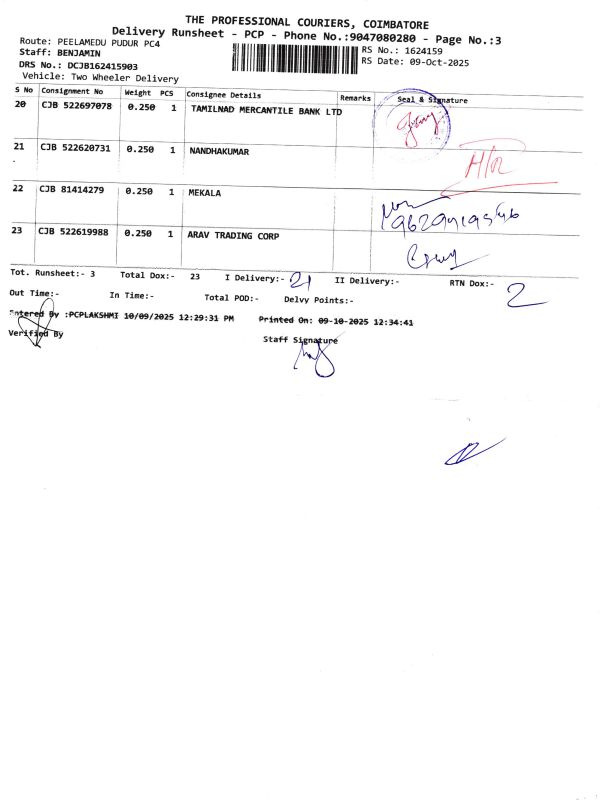 THE PROFESSIONAL COURIERS, COIMBATORE
Delivery Runsheet - PCP - Phone No.:9047080280 - Page No.:3
Route: PEELAMEDU PUDUR PC4
RS No.: 1624159
Staff: BENJAMIN
RS Date: 09-Oct-2025
DRS No.: DCJB162415903
Vehicle: Two Wheeler Delivery
S No Consignment No Weight PCS Consignee Details Remarks Seal & Signature
20 CJB 522697078 0.250 1 TAMILNAD MERCANTILE BANK LTD
21 CJB 522620731 0.250 1 NANDHAKUMAR
22 CJB 81414279 0.250 1 MEKALA
23 CJB 522619988 0.250 1 ARAV TRADING CORP
Tot. Runsheet:- 3 Total Dox:- 23 I Delivery:- 21 II Delivery:- RTN Dox:- 2
Out Time:- In Time:- Total POD:- Delvy Points:-
Entered By :PCPLAKSHMI 10/09/2025 12:29:31 PM Printed On: 09-10-2025 12:34:41
Verified By
Staff Signature